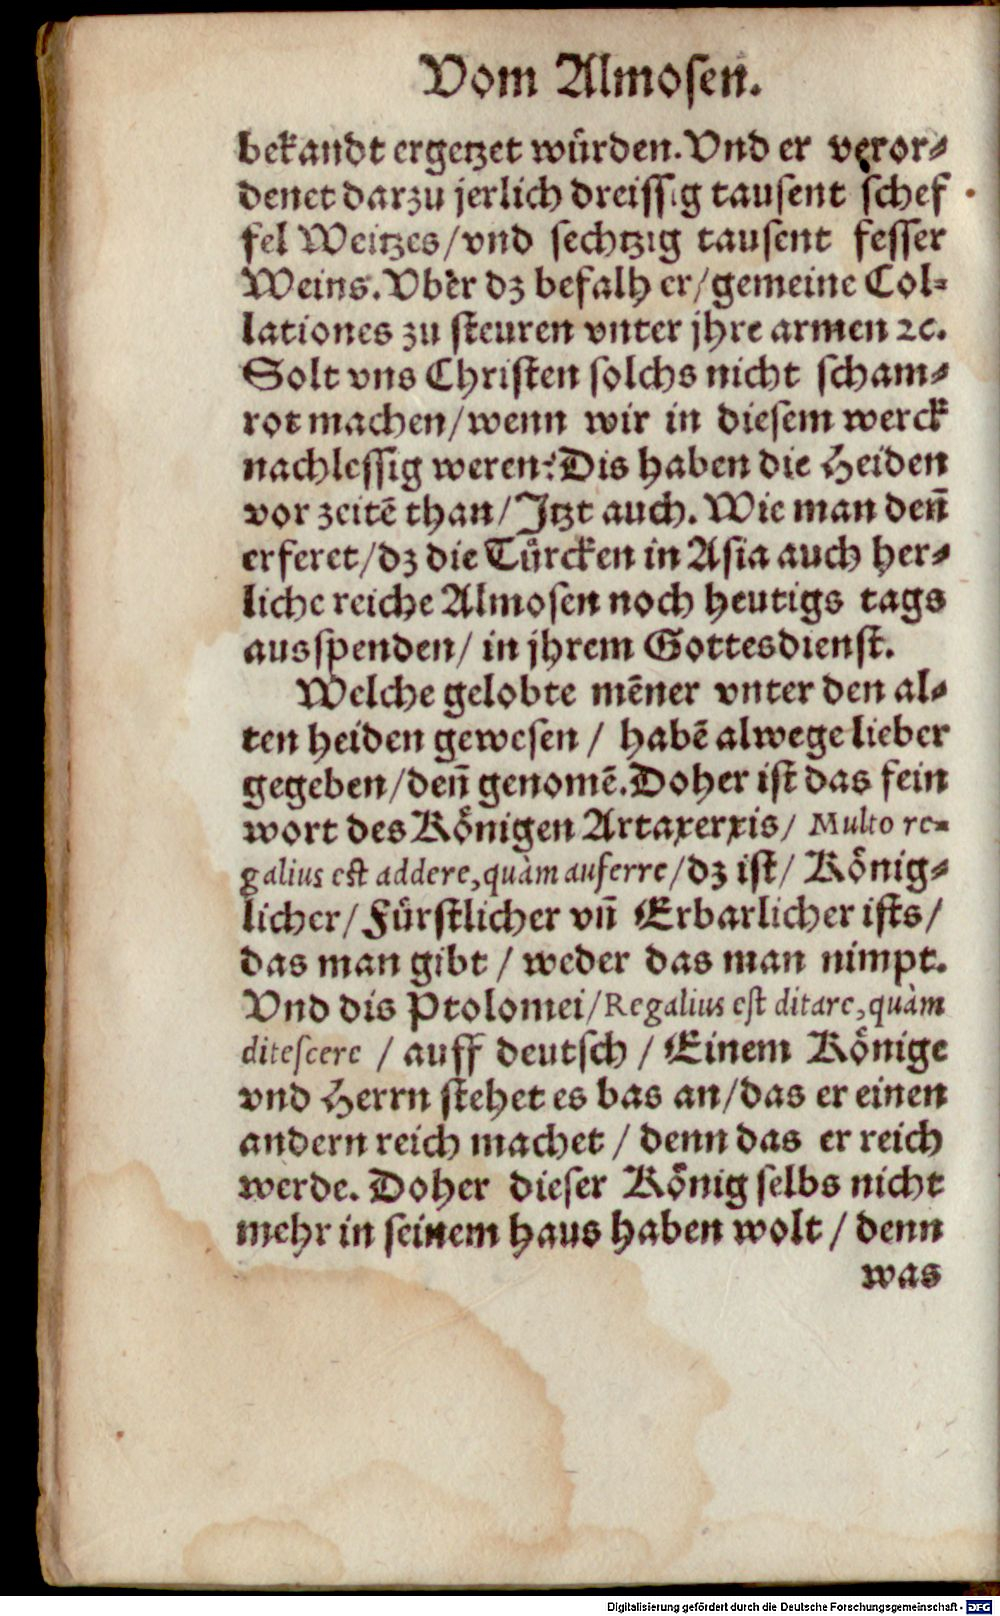 Vom Almosen.
bekandt ergetzet würden. Vnd er veror⸗
denet darzu jerlich dreissig tausent schef
fel Weitzes/vnd sechtzig tausent fesser
Weins. Vber dz befalh er/gemeine Col⸗
lationes zu steuren vnter jhre armen ꝛc.
Solt vns Christen solchs nicht scham⸗
rot machen/wenn wir in diesem werck
nachlessig weren? Dis haben die Heiden
vor zeitē than/Jtzt auch. Wie man deñ
erferet/dz die Türcken in Asia auch her⸗
liche reiche Almosen noch heutigs tags
ausspenden/ in jhrem Gottesdienst.
Welche gelobte mēner vnter den al⸗
ten heiden gewesen / habē alwege lieber
gegeben/deñ genomē. Doher ist das fein
wort des Königen Artaxerxis/ Multo re⸗
galius est addere, quàm auferre/dz ist/ König⸗
licher/ Fürstlicher vñ Erbarlicher ists/
das man gibt / weder das man nimpt.
Vnd dis Ptolomei/Regalius est ditare, quàm
ditescere / auff deutsch / Einem Könige
vnd Herrn stehet es bas an/das er einen
andern reich machet / denn das er reich
werde. Doher dieser König selbs nicht
mehr in seinem haus haben wolt / denn
was
Digitalisierung gefördert durch die Deutsche Forschungsgemeinschaft - DFG